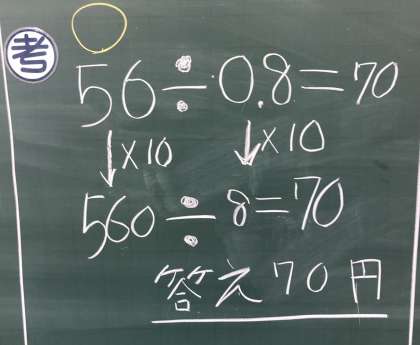 考
56÷0.8=70
↓×10 ↓×10
560÷8=70
答え70円